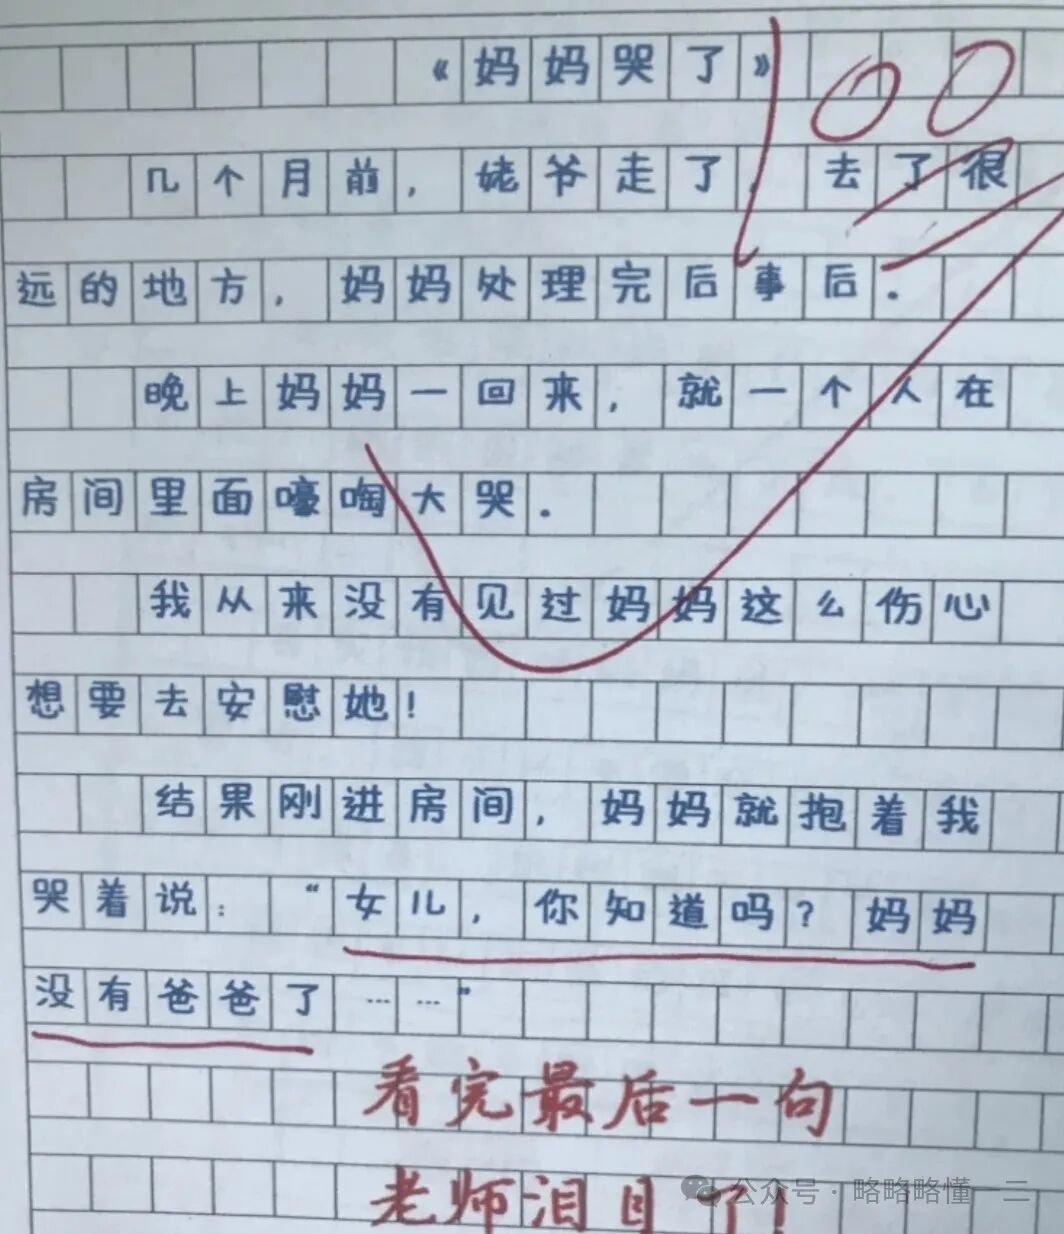 《妈妈哭了》 100
几个月前，姥爷走了，去了很
远的地方，妈妈处理完后事后.
晚上妈妈一回来，就一个人在
房间里面嚎啕大哭.
我从来没有见过妈妈这么伤心
想要去安慰她！
结果刚进房间，妈妈就抱着我
哭着说："女儿，你知道吗？妈妈
没有爸爸了……"
看完最后一句
老师泪目了！
公众号·略略略懂一二